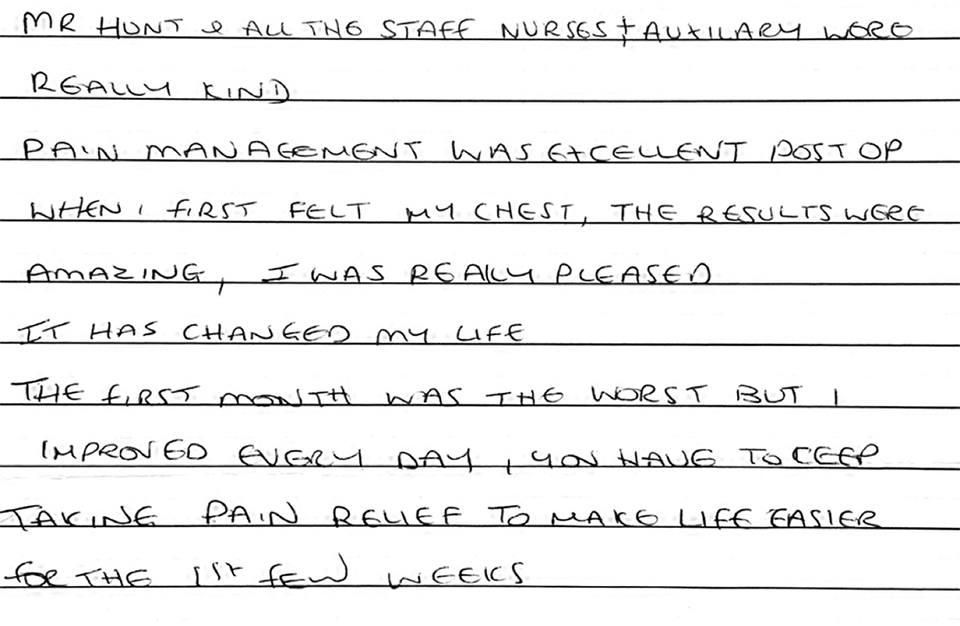 MR HUNT & ALL THE STAFF NURSES + AUXILARY WERE
REALLY KIND
PAIN MANAGEMENT WAS EXCELLENT POST OP
WHEN I FIRST FELT MY CHEST, THE RESULTS WERE
AMAZING, I WAS REALLY PLEASED
IT HAS CHANGED MY LIFE
THE FIRST MONTH WAS THE WORST BUT I
IMPROVED EVERY DAY, YOU HAVE TO CEEP
TAKING PAIN RELIEF TO MAKE LIFE EASIER
FOR THE 1ST FEW WEEKS